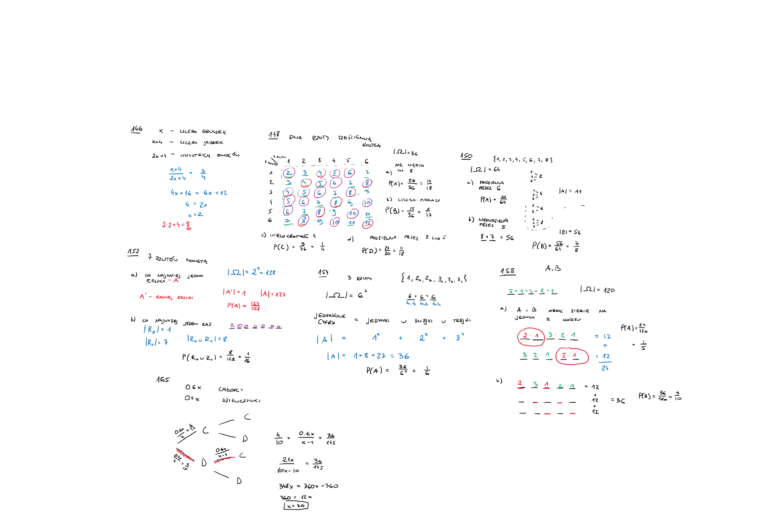 146
x – LICZBA GRUSZEK
x+4 – LICZBA JABŁEK
2x+4 – WSZYSTKICH OWOCÓW
x+4/2x+4 = 3/4
4x+16 = 6x+12
4 = 2x
x=2
2·2+4=8
148 DWA RZUTY SZEŚCIENNĄ KOSTKĄ
1 2 3 4 5 6
1 2 3 4 5 6 7
2 3 4 5 6 7 8
3 4 5 6 7 8 9
4 5 6 7 8 9 10
5 6 7 8 9 10 11
6 7 8 9 10 11 12
|Ω|=36
a) NIE WIĘCEJ NIŻ 8
P(A)= 26/36 = 13/18
b)
P(B)= 15/36 = 5/12
c) WIELOKROTNOŚĆ 4
P(C) = 9/36 = 1/4
d) PODZIELNA PRZEZ 2 LUB 5
P(D)= 22/36 = 11/18
150 {1,2,3,4,5,6,7,8}
|Ω|=64
a) PODZIELNA PRZEZ 6
P(A)= 11/64
|A|=11
b) NIEPODZIELNA PRZEZ 5
8·7=56
|B|=56
P(B)= 56/64 = 7/8
152 7 RZUTÓW MONETĄ
a) CO NAJMNIEJ JEDNA RESZKA – A'
|Ω|=2⁷=128
|A'|=1 |A|=127
P(A)= 127/128
b) CO NAJWYŻEJ JEDEN RAZ
|R₀|=1
|R₁|=7
|R₀∪R₁|=8
P(R₀∪R₁)= 8/128 = 1/16
157 3 RZUTY {1, 2, 2, 3, 3, 3}
|Ω|=6³
6·6·6
JEDNAKOWE CYFRY = JEDYNKI ∪ DWÓJKI ∪ TRÓJKI
|A| = 1³ + 2³ + 3³
|A| = 1+8+27=36
P(A)= 36/6³ = 1/6
158 A,B
5·4·3·2·1 |Ω|=120
a) A, B OBOK SIEBIE NA JEDNYM Z KOŃCÓW
2·1 3·2·1 = 12
+
3·2·1 2·1 = 12
24
P(A)= 24/120
= 1/5
b)
2 3 1 2 1 = 12
+
12 = 36
+
12
P(B)= 36/120 = 3/10
165
0.6x CHŁOPCY
0.4x DZIEWCZYNKI
C
C
D
D
C
D
4/10 · 0.6x/x-1 = 36/145
24x/10x-10 = 36/145
348x = 360x-360
360 = 12x
x=30